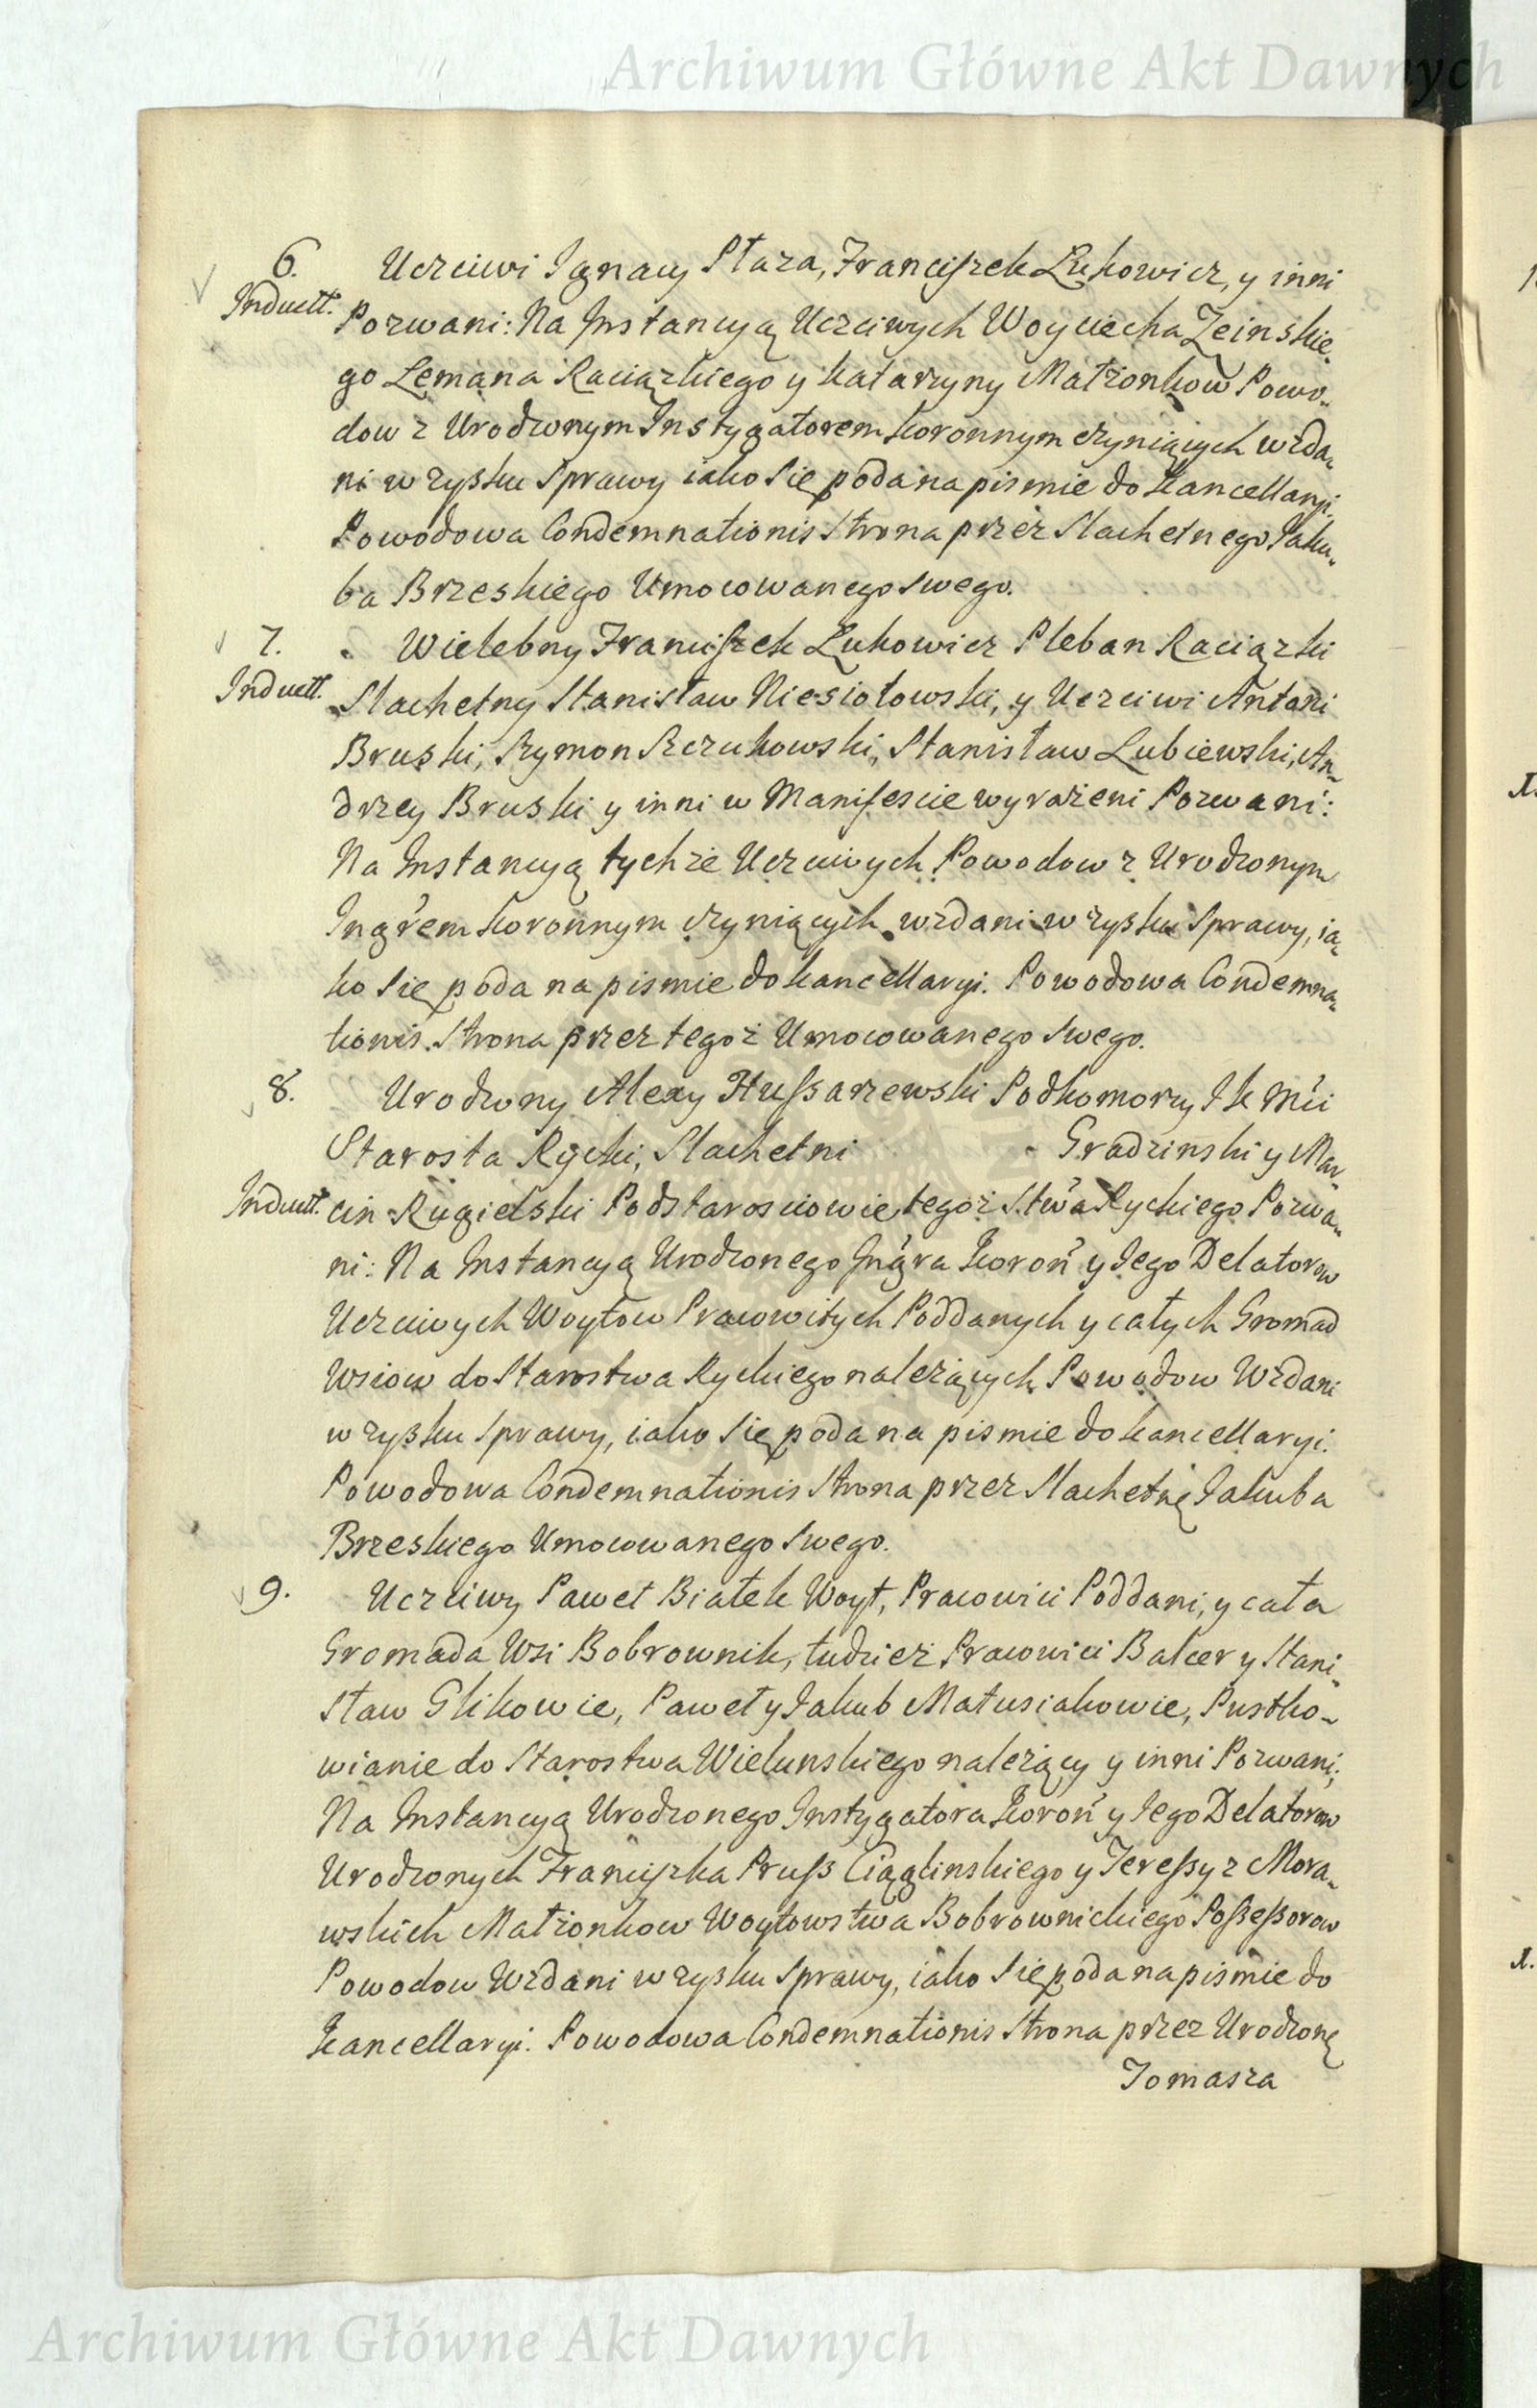 Archiwum Główne Akt Dawnych
6. Uczciwi Ignacy Płaza, Franciszek Lukowicz, y inni
Inductt. Pozwani: Na Instancyą Uczciwych Woyciecha Zeinskie-
go Lemana Raciązkiego y Katarzyny Małżonkow Powo-
dow z Urodzonym Instygatorem Koronnym czyniących wzda-
ni w zysku Sprawy iako się poda na pismie do Kancellaryi.
Powodowa Condemnationis Strona przez Slachetnego Jaku-
ba Brzeskiego Umocowanego swego.
7. Wielebny Franciszek Lukowicz Pleban Raciązki
Induett. Slachetny Stanisław Niesiołowski, y Uczciwi Antoni
Bruski, Szymon Szczukowski, Stanisław Lubiewski, An-
drzey Bruski y inni w Manifescie wyrażeni Pozwani:
Na Instancyą tychże Uczciwych Powodow z Urodzonym
Ingrem Koronnym czyniących wzdani w zysku Sprawy, ia-
ko się poda na pismie do Kancellaryi. Powodowa Condemna-
tionis Strona przez tegoż Umocowanego swego.
8. Urodzony Alexy Hussarzewski Podkomorzy JK Mci
Starosta Rycki, Slachetni - Gradzinski y Mar-
Induett. cin Rugielski Podstarosciowie tegoż Stwa Ryckiego Pozwa-
ni: Na Instancyą Urodzonego Ingra Koron y Jego Delatorow
Uczciwych Woytow Pracowitych Poddanych y całych Gromad
Wsiow do Starostwa Ryckiego należących Powodow Wzdani
w zysku Sprawy, iako się poda na pismie do Kancellaryi.
Powodowa Condemnationis Strona przez Slachetnę Jakuba
Brzeskiego Umocowanego swego.
9. Uczciwy Paweł Białek Woyt, Pracowici Poddani, y cała
Gromada Wsi Bobrownik, tudzież Pracowici Balcer y Stani-
sław Glikowie, Paweł y Jakub Matusiakowie, Pustko-
wianie do Starostwa Wielunskiego należący y inni Pozwani;
Na Instancyą Urodzonego Instygatora Koron y Jego Delatorow
Urodzonych Franciszka Pruss Ciąglinskiego y Teressy z Mora-
wskich Małżonkow Woytowstwa Bobrownickiego Possessorow
Powodow Wzdani w zysku Sprawy, iako się poda na pismie do
Kancellaryi. Powodowa Condemnationis Strona przez Urodzonę
Tomasza
Archiwum Główne Akt Dawnych